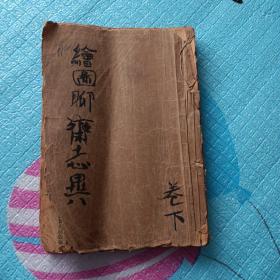 繪圖聊齋志異
卷下